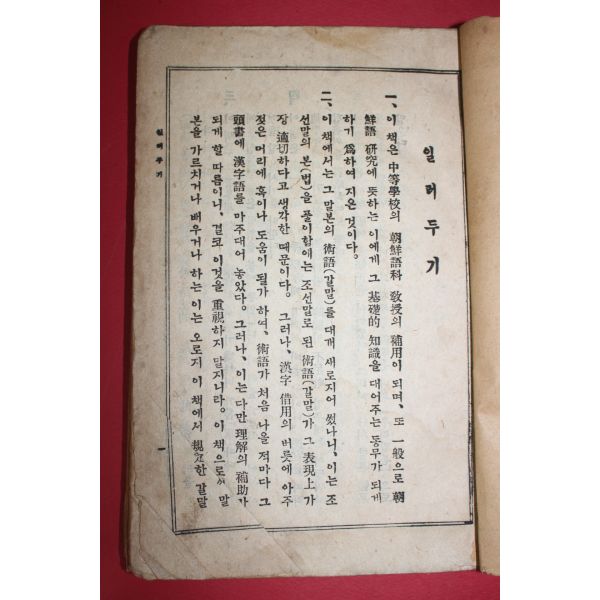 일러두기
一、이 책은 中等學校의 朝鮮語科 敎授의 補用이 되며, 또 一般으로 朝
鮮語 硏究에 뜻하는 이에게 그 基礎的 知識을 대어주는 동무가 되게
하기 爲하여 지은 것이다。
二、이 책에서는 그 말본의 術語(갈말)를 대개 새로지어 썼나니, 이는 조
선말의 본(법)을 풀이함에는 조선말로 된 術語(갈말)가 그 表現上 가
장 適切하다고 생각한 때문이다。 그러나, 漢字 借用의 버릇에 아주
젖은 머리에 혹이나 도움이 될가 하여, 術語가 처음 나올 적마다 그
頭書에 漢字語를 마주대어 놓았다。그러나, 이는 다만 理解의 補助가
되게 할 따름이니, 결코 이것을 重視하지 말지니라。이 책으로써 말
본을 가르치거나 배우거나 하는 이는 오로지 이 책에서 規定한 갈말
일러두기
一